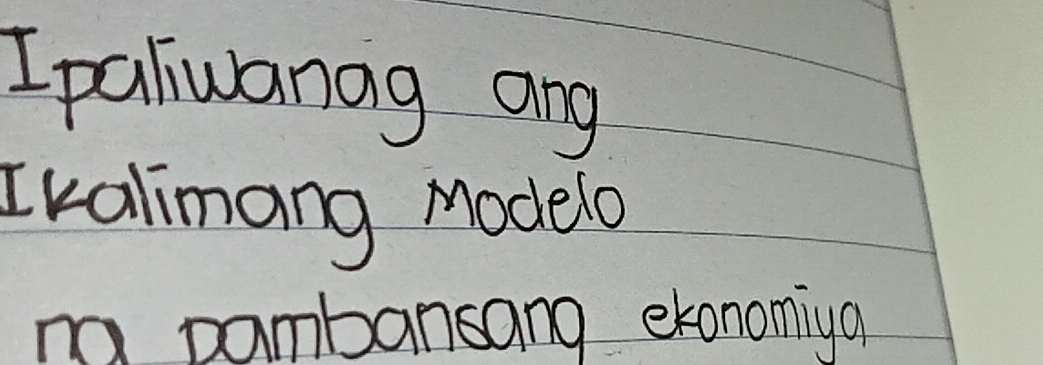 Ipaliwanag ang
Ikalimang Modelo
na pambansang ekonomiya